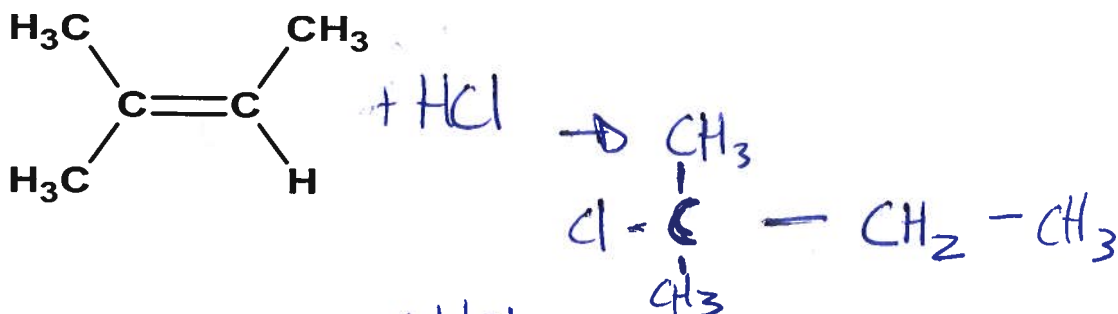 H₃C CH₃
C C + HCl
H₃C H
→ CH₃
Cl - C — CH₂ - CH₃
CH₃